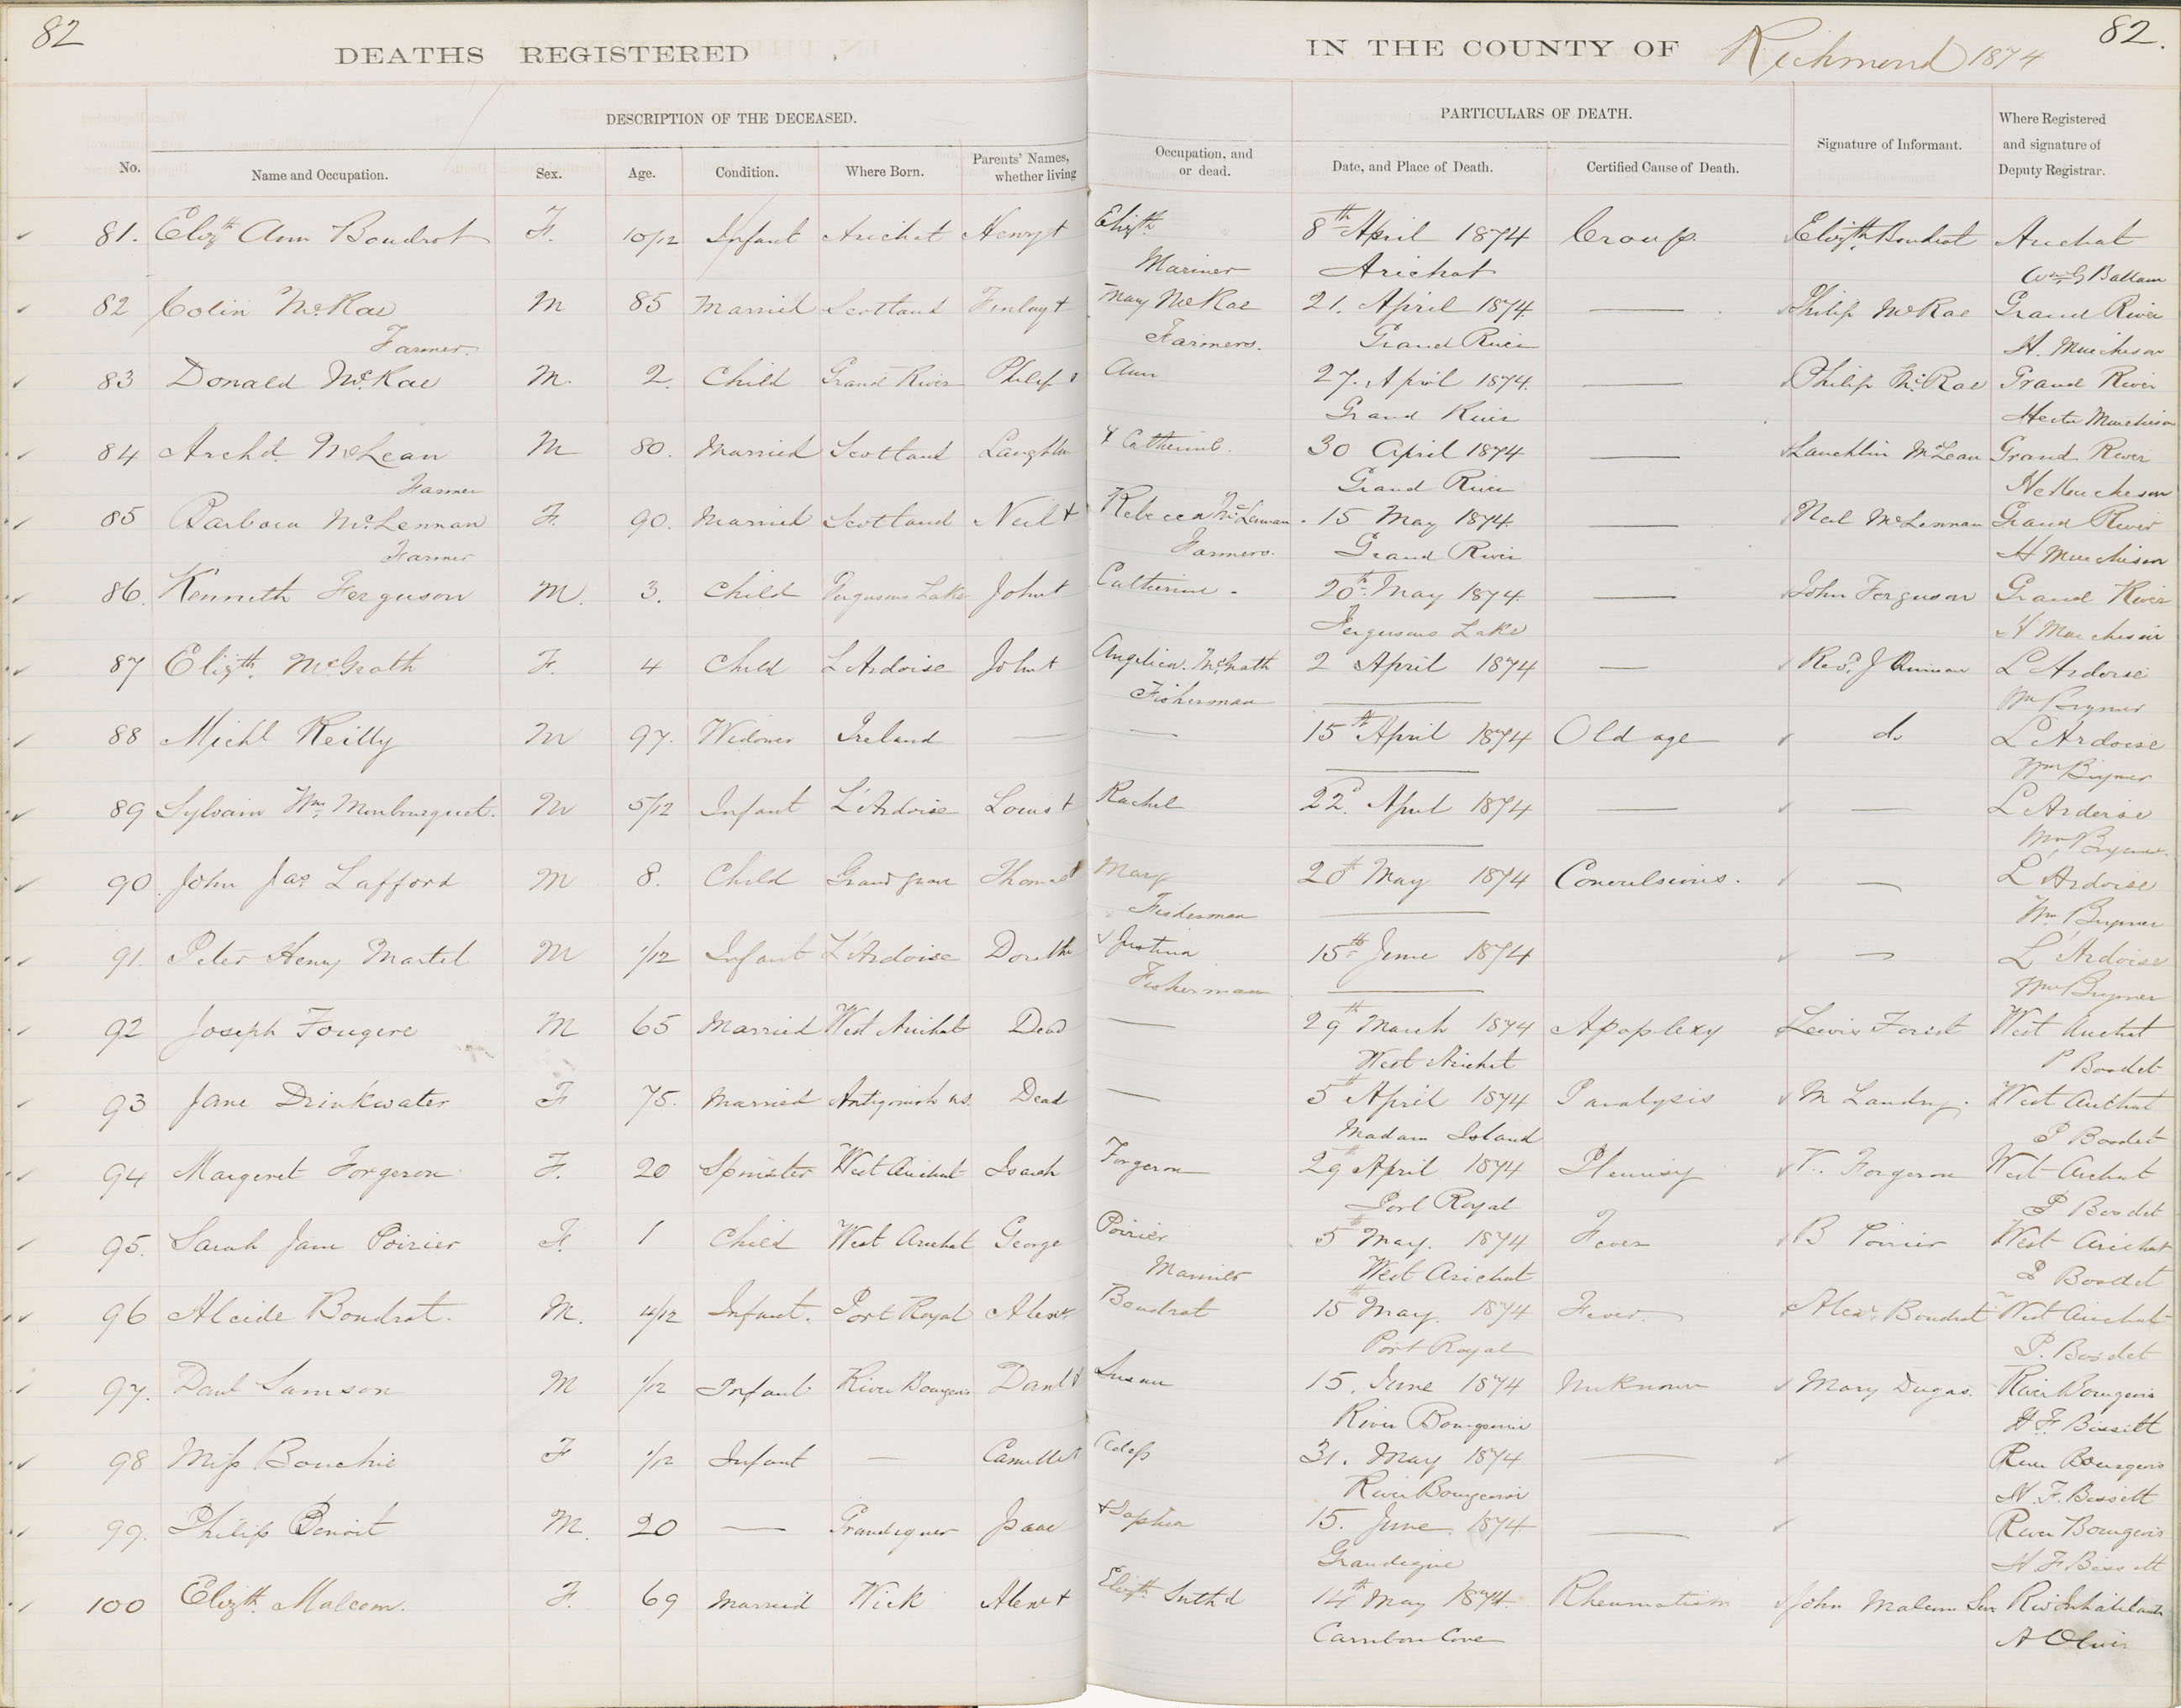 82
82.
DEATHS REGISTERED IN THE COUNTY OF Richmond 1874
DESCRIPTION OF THE DECEASED.
PARTICULARS OF DEATH.
No. Name and Occupation. Sex. Age. Condition. Where Born. Parents' Names, whether living Occupation, and or dead. Date, and Place of Death. Certified Cause of Death. Signature of Informant. Where Registered and signature of Deputy Registrar.
81. Elizth Ann Boudrot F. 10/12 Infant Arichat Henry + Elizth 8th April 1874 Croup. Elizth Boudrot Arichat
Mariner Arichat Wm G Ballam
82 Colin McRae M 85 Married Scotland Finlay + Mary McRae 21. April 1874. — Philip McRae Grand River
Farmer. Farmers. Grand River H. Murchison
83 Donald McRae M. 2. Child Grand River Philip + Ann 27. April 1874. — Philip McRae Grand River
Grand River Hector Murchison
84 Archd. McLean M 80. Married Scotland Laughlin + Catherine. 30 April 1874 — Lauchlin McLean Grand River
Farmer Grand River H Murcheson
85 Barbara McLennan F. 90. Married Scotland Neil + Rebecca McLennan. 15 May 1874. — Neil McLennan Grand River
Farmer Farmers. Grand River H Murchison
86. Kenneth Ferguson M. 3. Child Fergusons Lake John + Catherine - 20th May 1874. — John Ferguson Grand River
Fergusons Lake H Murchison
87 Elizth. McGrath F. 4 Child L'Ardoise John + Angelica McGrath 2 April 1874 — Revd. J Quinan L'Ardoise
Fisherman — Wm Brymer
88 Michl Reilly M 97. Widower Ireland — — 15th April 1874 Old age do L'Ardoise
— Wm Brymer
89 Sylvain Wm. Monbourquet. M 5/12 Infant L'Ardoise Louis + Rachel 22d. April 1874 — — L'Ardoise
— Wm Brymer
90. John Jas Lafford M 8. Child Grand grave Thomas + Mary 20th May 1874 Convulsions. — L'Ardoise
Fisherman — Wm Brymer
91. Peter Henry Martel M 1/12 Infant L'Ardoise + Justina 15th June 1874 — L'Ardoise
Fisherman — Wm Brymer
92 Joseph Fougere M 65 Married West Arichat Dead — 29th March 1874 Apoplexy Lewis Forest West Arichat
West Arichat P Boudet
93 Jane Drinkwater F 75. Married Antigonish NS. Dead — 5th April 1874 Paralysis M Landry. West Arichat
Madam Island P Boudet
94 Margeret Forgeron F. 20 Spinster West Arichat Isaiah Forgeron 29th April 1874 Pleurisy V. Forgeron West Arichat
Port Royal P Boudet
95. Sarah Jane Poirier F. 1 Child West Arichat George Poirier 5th May. 1874 Fever B Poirier West Arichat
Mariner West Arichat P Boudet
96 Alcide Boudrot. M. 4/12 Infant. Port Royal Alexr Boudrot 15th May. 1874 Fever. Alexr. Boudrot West Arichat
Port Royal P. Boudet
97. Danl Samson M 1/12 Infant River Bourgeois Danl + Susan 15. June 1874 Unknown Mary Dugas. River Bourgeois
River Bourgeois H F. Bissett
98 Miss Bouchie F 1/12 Infant — Camille + 31. May 1874 — River Bourgeois
River Bourgeois H. F. Bissett
99. Philip Benoit M. 20 — Grandique Isaac + Sophia 15. June 1874 — River Bourgeois
Grandique H F Bissett
100 Elizth. Malcom. F. 69 Married Wick Alexr + Elizth Suth'd 14th May 1874. Rheumatism John Malcom Senr Riv Inhabitants
Carribou Cove A Oliver